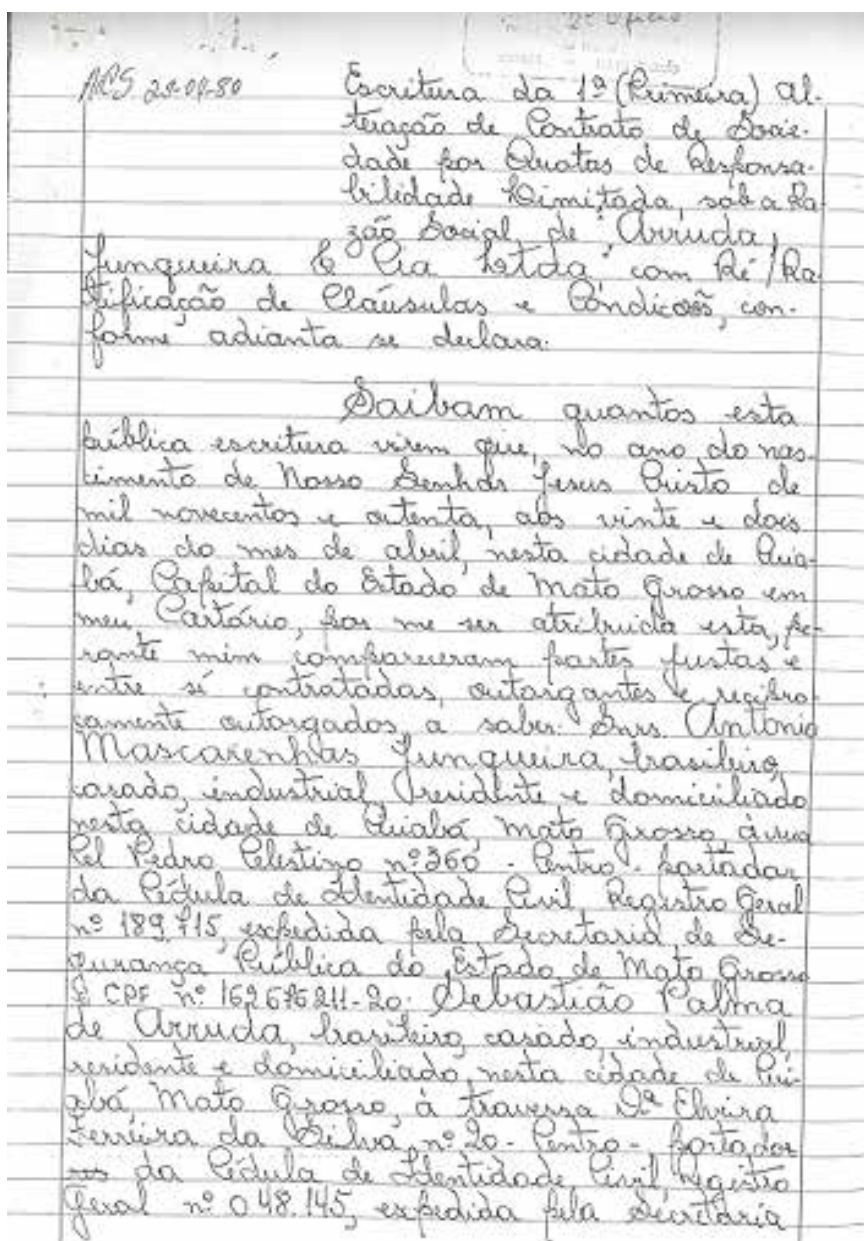 2º Ofício
NRS 28-04-80
Escritura da 1ª (Primeira) Al-
teração de Contrato de Socie-
dade por Quotas de Responsa-
bilidade Limitada, sob a Ra-
zão Social de "Arruda,
Junqueira & Cia Ltda" com Ré/Ra
tificação de Claúsulas e Condicoẽs, con-
forme adianta se declara:
Saibam quantos esta
pública escritura virem que, no ano do nas-
cimento de Nosso Senhor Jesus Cristo de
mil novecentos e oitenta, aos vinte e dois
dias do mes de abril, nesta cidade de Cuia-
bá, Capital do Estado de Mato Grosso em
meu Cartório, por me ser atribuida esta, pe-
rante mim compareceram partes justas e
entre sí contratadas, outorgantes e recipro-
camente outorgados, a saber: Snrs. Antonio
Mascarenhas Junqueira, brasileiro,
casado, industrial residente e domiciliado
nesta cidade de Cuiabá, Mato Grosso, à rua
Cel Pedro Celestino nº 360 - Centro - portador
da Cédula de Identidade Civil Registro Geral
nº 189.715, expedida pela Secretaria de Se-
gurança Pública do Estado de Mato Grosso
e CPF nº 162676211-20. Sebastião Palma
de Arruda, brasileiro, casado, industrial,
residente e domiciliado nesta cidade de Cui-
abá, Mato Grosso, à travessa Dª Elvira
Ferreira da Silva, nº 20 - Centro - portador
da Cédula de Identidade Civil Registro
Geral nº 048.145, expedida pela Secretaria